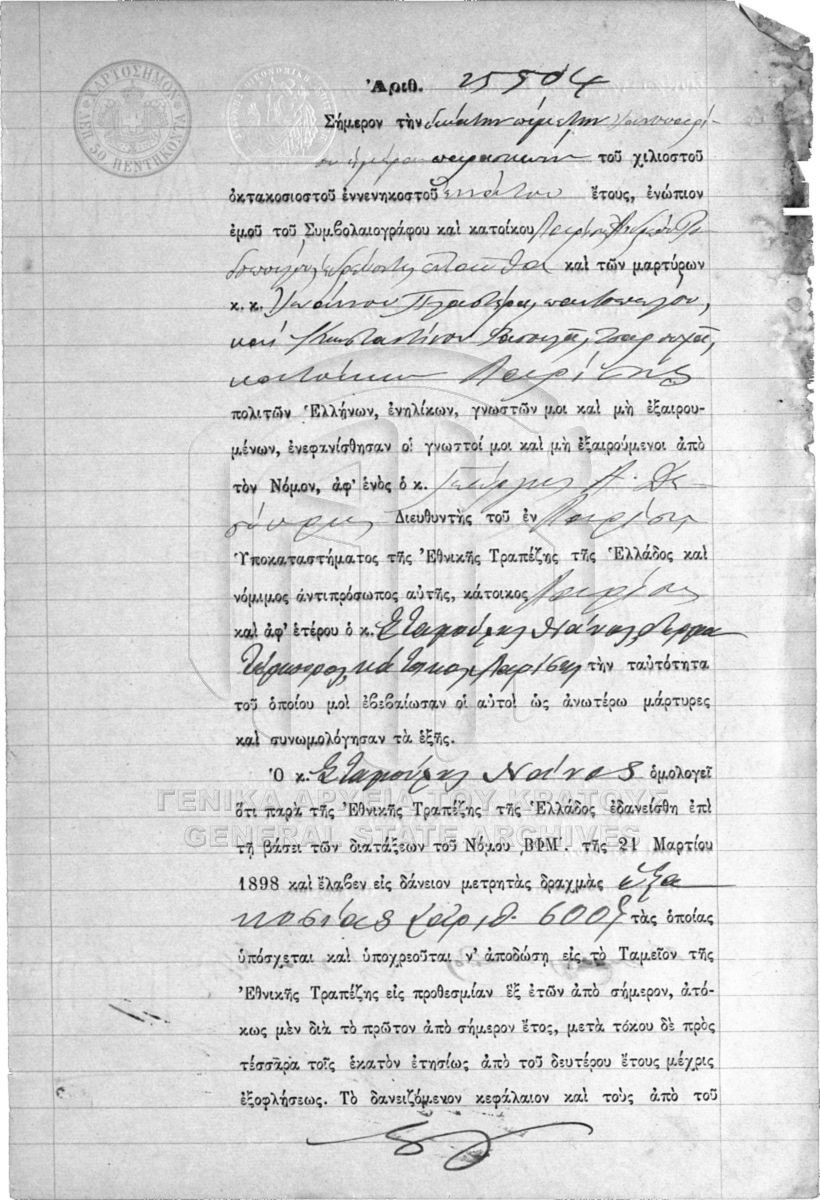 ΧΑΡΤΟΣΗΜΟΝ
ΛΕΠ. 50 ΠΕΝΤΗΚΟΝΤΑ
Ἀριθ. 25504
Σήμερον τὴν δεκάτην πέμπτην Ἰανουαρί-
ου ἡμέραν παρασκευὴν τοῦ χιλιοστοῦ
ὀκτακοσιοστοῦ ἐννενηκοστοῦ ἐννάτου ἔτους, ἐνώπιον
ἐμοῦ τοῦ Συμβολαιογράφου καὶ κατοίκου Λαρίσης
καὶ τῶν μαρτύρων
κ. κ. Ἰωάννου Πλαστάρα, παντοπώλου,
καὶ Κωνσταντίνου
κατοίκων Λαρίσης
πολιτῶν Ἑλλήνων, ἐνηλίκων, γνωστῶν μοι καὶ μὴ ἐξαιρου-
μένων, ἐνεφανίσθησαν οἱ γνωστοί μοι καὶ μὴ ἐξαιρούμενοι ἀπὸ
τὸν Νόμον, ἀφ' ἑνὸς ὁ κ. Γεώργιος Α.
Διευθυντὴς τοῦ ἐν Λαρίσῃ
Ὑποκαταστήματος τῆς Ἐθνικῆς Τραπέζης τῆς Ἑλλάδος καὶ
νόμιμος ἀντιπρόσωπος αὐτῆς, κάτοικος Λαρίσης
καὶ ἀφ' ἑτέρου ὁ κ. Σταμούλης Νάνος
κάτοικος Λαρίσης τὴν ταὐτότητα
τοῦ ὁποίου μοὶ ἐβεβαίωσαν οἱ αὐτοὶ ὡς ἀνωτέρω μάρτυρες
καὶ συνωμολόγησαν τὰ ἑξῆς.
Ὁ κ. Σταμούλης Νάνος ὁμολογεῖ
ΓΕΝΙΚΑ ΑΡΧΕΙΑ ΤΟΥ ΚΡΑΤΟΥΣ
ὅτι παρὰ τῆς Ἐθνικῆς Τραπέζης τῆς Ἑλλάδος ἐδανείσθη ἐπὶ
GENERAL STATE ARCHIVES
τῇ βάσει τῶν διατάξεων τοῦ Νόμου ͵ΒΦΜ΄. τῆς 21 Μαρτίου
1898 καὶ ἔλαβεν εἰς δάνειον μετρητὰς δραχμὰς ἑξα
κοσίας ἀριθ. 600 τὰς ὁποίας
ὑπόσχεται καὶ ὑποχρεοῦται ν' ἀποδώσῃ εἰς τὸ Ταμεῖον τῆς
Ἐθνικῆς Τραπέζης εἰς προθεσμίαν ἓξ ἐτῶν ἀπὸ σήμερον, ἀτό-
κως μὲν διὰ τὸ πρῶτον ἀπὸ σήμερον ἔτος, μετὰ τόκου δὲ πρὸς
τέσσαρα τοῖς ἑκατὸν ἐτησίως ἀπὸ τοῦ δευτέρου ἔτους μέχρις
ἐξοφλήσεως. Τὸ δανειζόμενον κεφάλαιον καὶ τοὺς ἀπὸ τοῦ